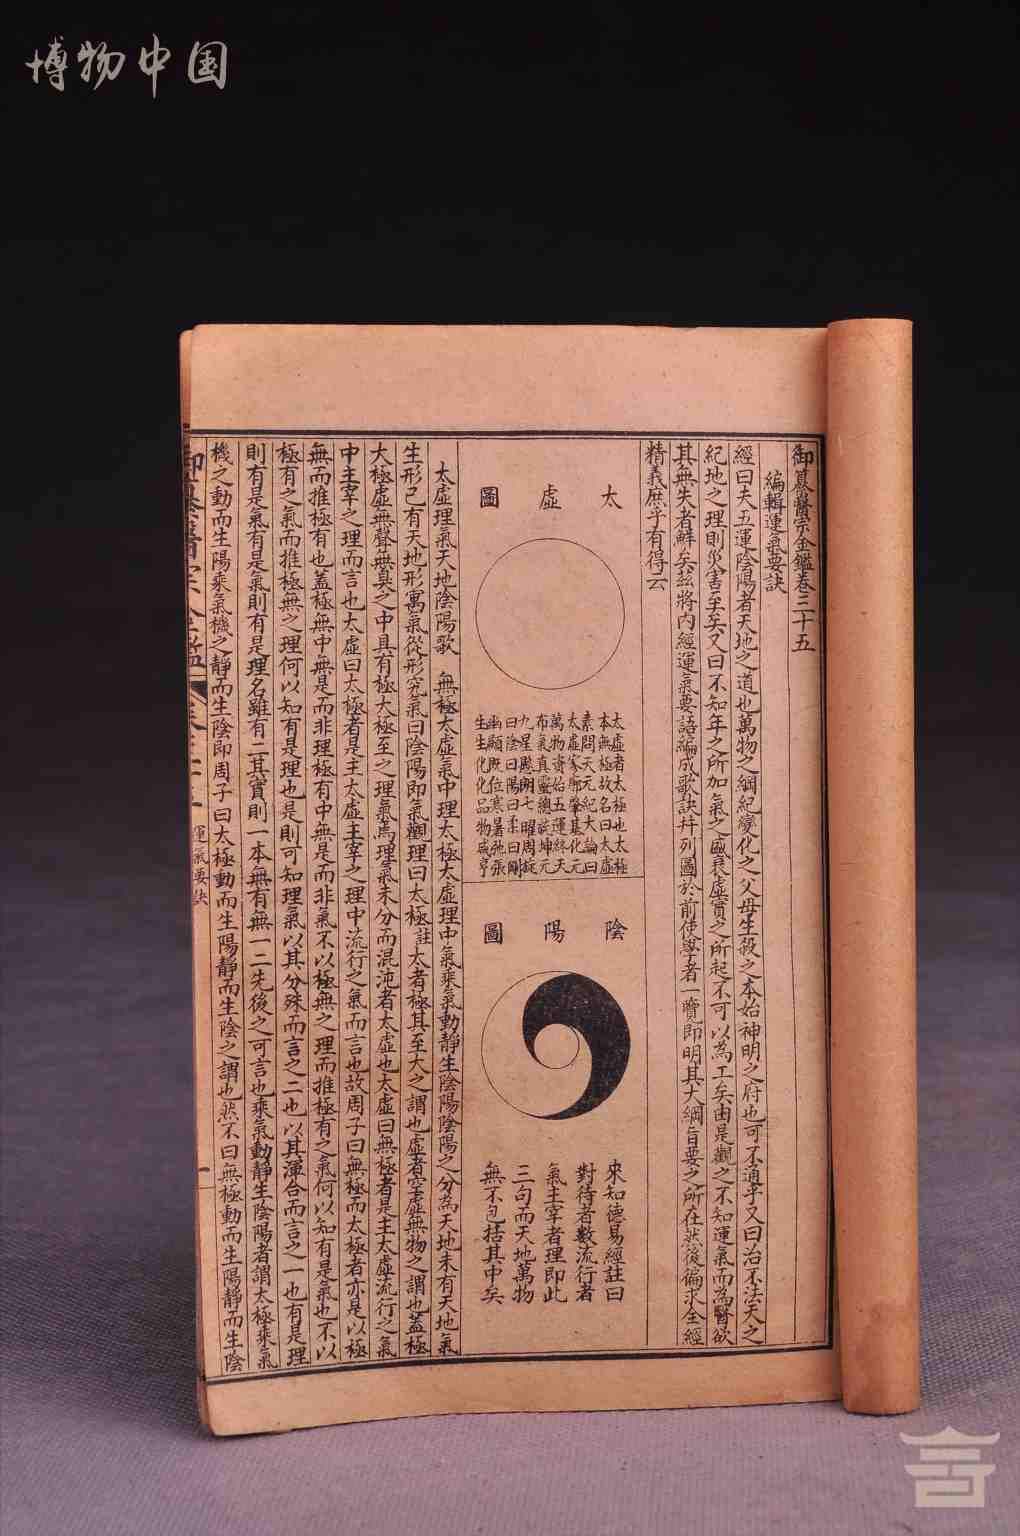 博物中国
御纂醫宗金鑑卷三十五
編輯運氣要訣
經曰夫五運陰陽者天地之道也萬物之綱紀變化之父母生殺之本始神明之府也可不通乎又曰治不法天之
紀地之理則災害至矣又曰不知年之所加氣之盛衰虛實之所起不可以為工矣由是觀之不知運氣而為醫欲
其無失者鮮矣茲將內經運氣要語編成歌訣幷列圖於前使學者一覽即明其大綱旨要之所在然後徧求全經
精義庶乎有得云
太虛圖
太虛者太極也太極
本無極故名曰太虛
素問天元紀大論曰
太虛寥廓肇基化元
萬物資始五運終天
布氣真靈總統坤元
九星懸朗七曜周旋
曰陰曰陽曰柔曰剛
幽顯既位寒暑弛張
生生化化品物咸亨
陰陽圖
來知德易經註曰
對待者數流行者
氣主宰者理即此
三句而天地萬物
無不包括其中矣
太虛理氣天地陰陽歌 無極太虛氣中理太極太虛理中氣乘氣動靜生陰陽陰陽之分為天地未有天地氣
生形已有天地形寓氣從形究氣曰陰陽即氣觀理曰太極註太者極其至大之謂也虛者空虛無物之謂也蓋極
大極虛無聲無臭之中具有極大極至之理氣焉理氣未分而混沌者太虛也太虛曰無極者是主太虛流行之氣
中主宰之理而言也太虛曰太極者是主太虛主宰之理中流行之氣而言也故周子曰無極而太極者亦是以極
無而推極有也蓋極無中無是而非理極有中無是而非氣不以極無之理而推極有之氣何以知有是氣也不以
極有之氣而推極無之理何以知有是理也是則可知理氣以其分殊而言之二也以其渾合而言之一也有是理
則有是氣有是氣則有是理名雖有二其實則一本無有無一二先後之可言也乘氣動靜生陰陽者謂太極乘氣
機之動而生陽乘氣機之靜而生陰即周子曰太極動而生陽靜而生陰之謂也然不曰無極動而生陽靜而生陰
運氣要訣
一